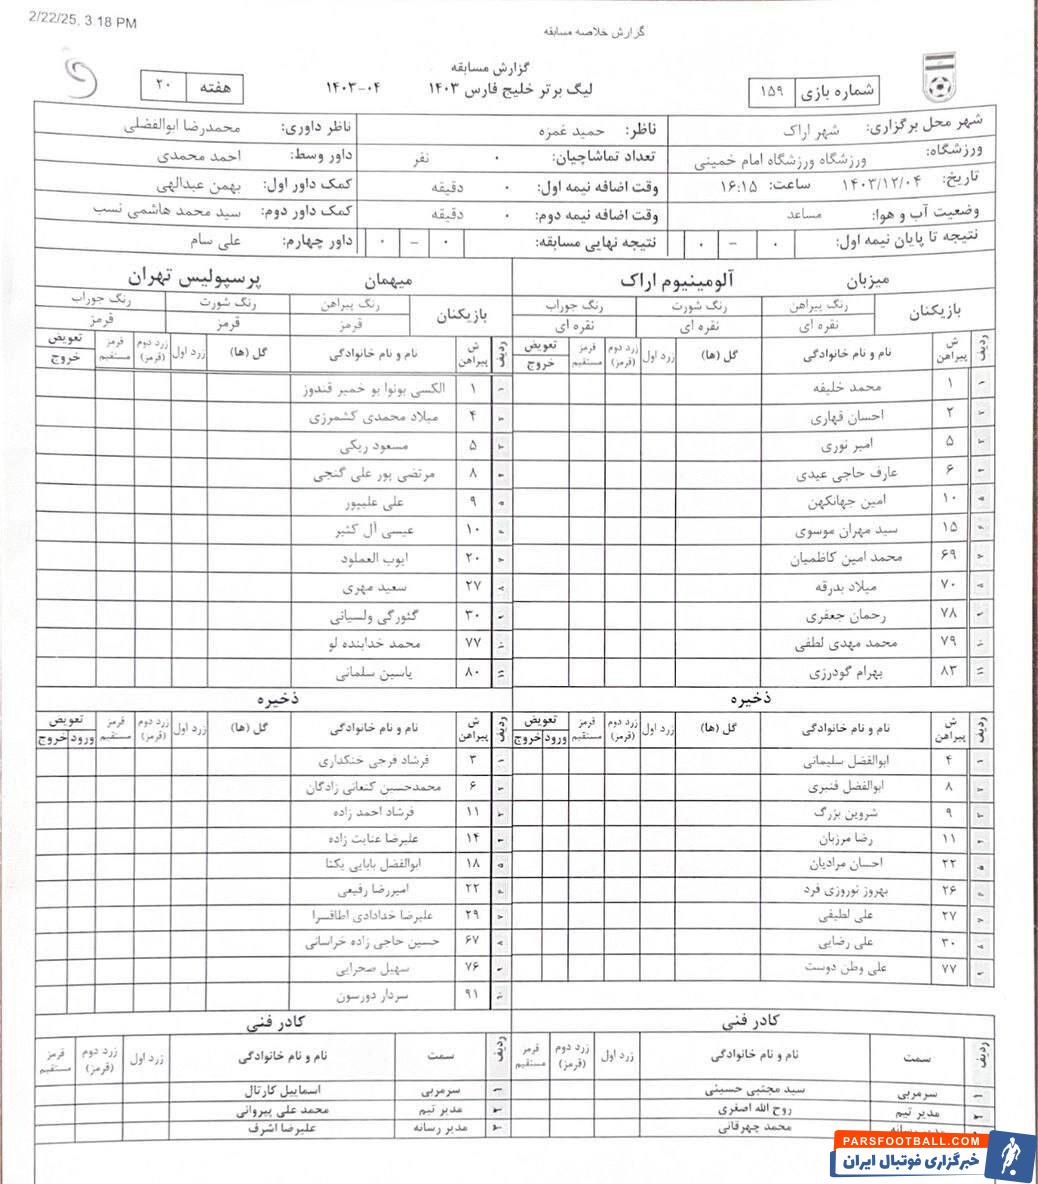 2/22/25, 3:18 PM
گزارش خلاصه مسابقه
گزارش مسابقه
شماره بازی ۱۵۹
لیگ برتر خلیج فارس ۱۴۰۳ ۰۴-۱۴۰۳
هفته ۲۰
شهر محل برگزاری: شهر اراک ناظر: حمید غمزه ناظر داوری: محمدرضا ابوالفضلی
ورزشگاه: ورزشگاه ورزشگاه امام خمینی تعداد تماشاچیان: ۰ نفر داور وسط: احمد محمدی
تاریخ: ۱۴۰۳/۱۲/۰۴ ساعت: ۱۶:۱۵ وقت اضافه نیمه اول: ۰ دقیقه کمک داور اول: بهمن عبدالهی
وضعیت آب و هوا: مساعد وقت اضافه نیمه دوم: ۰ دقیقه کمک داور دوم: سید محمد هاشمی نسب
نتیجه تا پایان نیمه اول: ۰ – ۰ نتیجه نهایی مسابقه: ۰ – ۰ داور چهارم: علی سام
میزبان آلومینیوم اراک
بازیکنان رنگ پیراهن رنگ شورت رنگ جوراب
نقره ای نقره ای نقره ای
ردیف ش پیراهن نام و نام خانوادگی گل (ها) زرد اول زرد دوم (قرمز) قرمز مستقیم تعویض خروج
۱ ۱ محمد خلیفه
۲ ۲ احسان قهاری
۳ ۵ امیر نوری
۴ ۶ عارف حاجی عیدی
۵ ۱۰ امین جهانکهن
۶ ۱۵ سید مهران موسوی
۷ ۶۹ محمد امین کاظمیان
۸ ۷۰ میلاد بدرقه
۹ ۷۸ رحمان جعفری
۱۰ ۷۹ محمد مهدی لطفی
۱۱ ۸۳ بهرام گودرزی
ذخیره
ردیف ش پیراهن نام و نام خانوادگی گل (ها) زرد اول زرد دوم (قرمز) قرمز مستقیم تعویض ورود خروج
۱ ۴ ابوالفضل سلیمانی
۲ ۸ ابوالفضل قنبری
۳ ۹ شروین بزرگ
۴ ۱۱ رضا مرزبان
۵ ۲۲ احسان مرادیان
۶ ۲۶ بهروز نوروزی فرد
۷ ۲۷ علی لطیفی
۸ ۳۰ علی رضایی
۹ ۷۷ علی وطن دوست
کادر فنی
ردیف سمت نام و نام خانوادگی زرد اول زرد دوم (قرمز) قرمز مستقیم
۱ سرمربی سید مجتبی حسینی
۲ مدیر تیم روح الله اصغری
مدیر رسانه محمد چهرقانی
میهمان پرسپولیس تهران
بازیکنان رنگ پیراهن رنگ شورت رنگ جوراب
قرمز قرمز قرمز
ردیف ش پیراهن نام و نام خانوادگی گل (ها) زرد اول زرد دوم (قرمز) قرمز مستقیم تعویض خروج
۱ ۱ الکسی بونوا بو خمیر قندوز
۲ ۴ میلاد محمدی کشمرزی
۳ ۵ مسعود ریکی
۴ ۸ مرتضی پور علی گنجی
۵ ۹ علی علیپور
۶ ۱۰ عیسی آل کثیر
۷ ۲۰ ایوب العملود
۸ ۲۷ سعید مهری
۹ ۳۰ گئورگی ولسیانی
۱۰ ۷۷ محمد خدابنده لو
۱۱ ۸۰ یاسین سلمانی
ذخیره
ردیف ش پیراهن نام و نام خانوادگی گل (ها) زرد اول زرد دوم (قرمز) قرمز مستقیم تعویض ورود خروج
۱ ۳ فرشاد فرجی خنکداری
۲ ۶ محمدحسین کنعانی زادگان
۳ ۱۱ فرشاد احمد زاده
۴ ۱۴ علیرضا عنایت زاده
۵ ۱۸ ابوالفضل بابایی یکتا
۶ ۲۲ امیررضا رفیعی
۷ ۲۹ علیرضا خدادادی اطاقسرا
۸ ۶۷ حسین حاجی زاده خراسانی
۹ ۷۶ سهیل صحرایی
۱۰ ۹۱ سردار دورسون
کادر فنی
ردیف سمت نام و نام خانوادگی زرد اول زرد دوم (قرمز) قرمز مستقیم
۱ سرمربی اسماییل کارتال
۲ مدیر تیم محمد علی پیروانی
۳ مدیر رسانه علیرضا اشرف
PARSFOOTBALL.COM
خبرگزاری فوتبال ایران